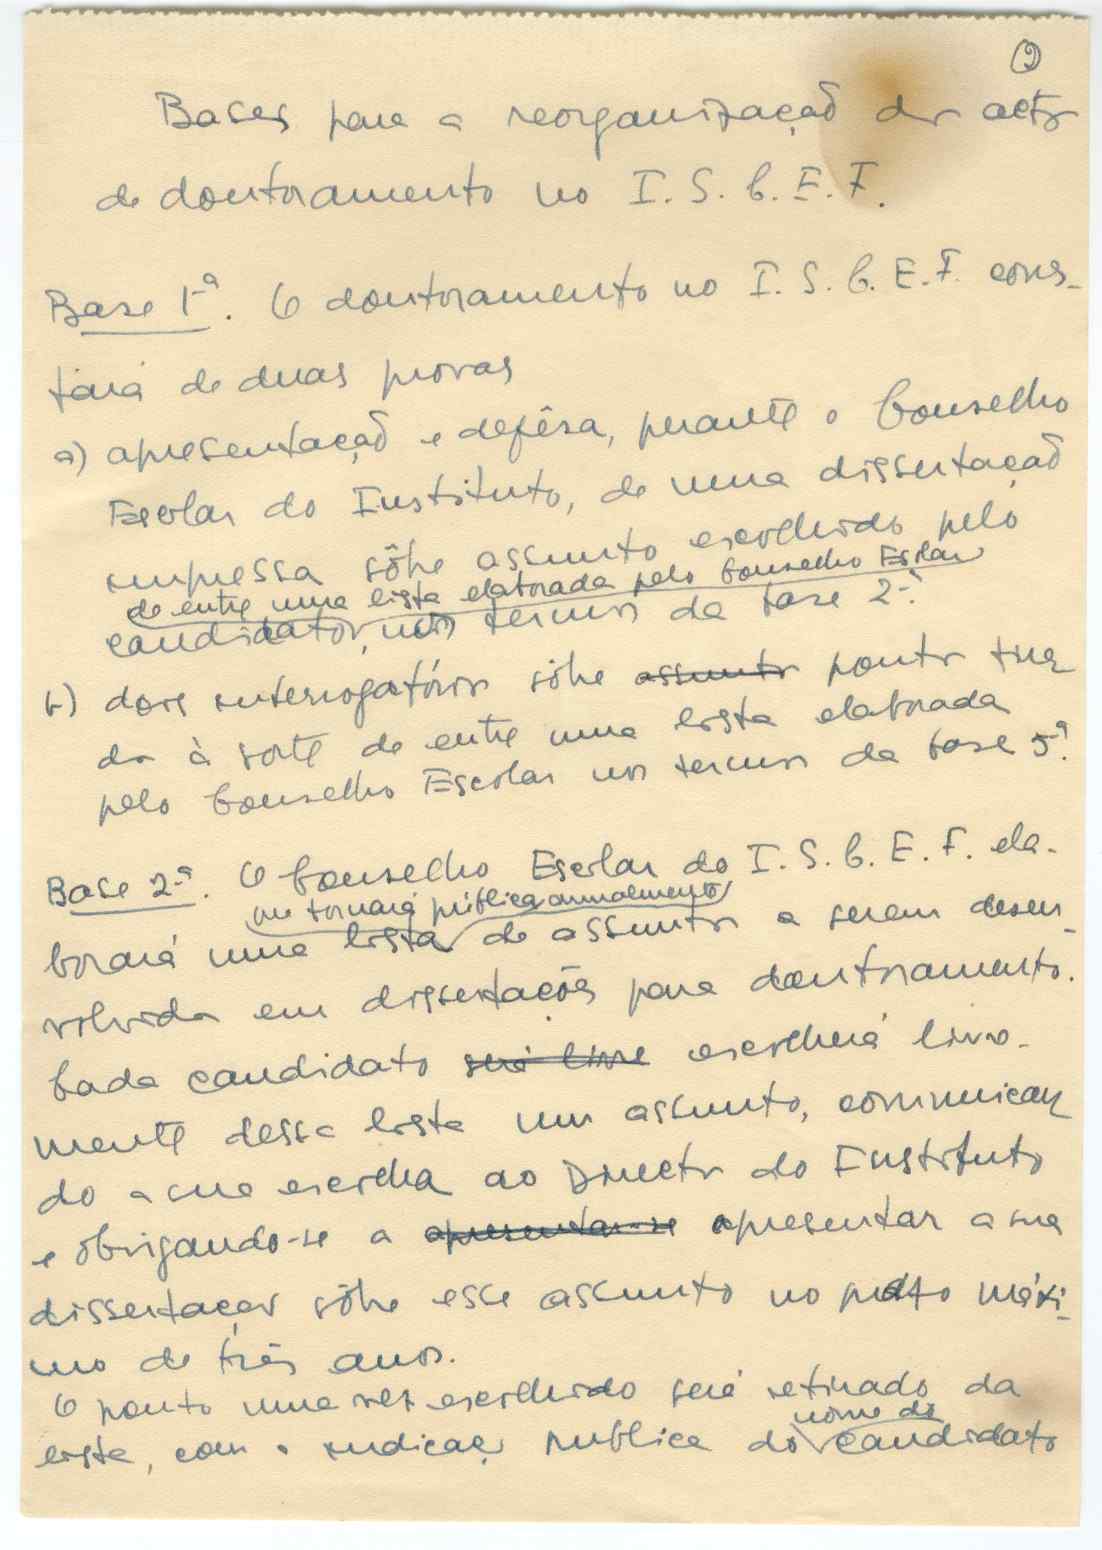 Bases para a reorganização dos actos
de doutoramento no I. S. C. E. F.
Base 1ª. O doutoramento no I. S. C. E. F. cons-
tará de duas provas
a) apresentação e defêsa, perante o Conselho
Escolar do Instituto, de uma dissertação
impressa sôbre assunto escolhido pelo
de entre uma lista elaborada pelo Conselho Escolar
candidato, nos termos da base 2ª.
b) dois interrogatórios sôbre assuntos pontos tira
dos à sorte de entre uma lista elaborada
pelo Conselho Escolar nos termos da base 5ª.
Base 2ª. O Conselho Escolar do I. S. C. E. F. ela-
que tornará pública anualmente
borará uma lista de assuntos a serem desen-
volvidos em dissertações para doutoramento.
Cada candidato será livre escolherá livre-
mente dessa lista um assunto, comunican
do a sua escolha ao Director do Instituto
e obrigando-se a apresentar-se apresentar a sua
dissertação sôbre esse assunto no prazo máxi-
mo de três anos.
O ponto uma vez escolhido será retirado da
nome do
lista, com a indicação publica do candidato